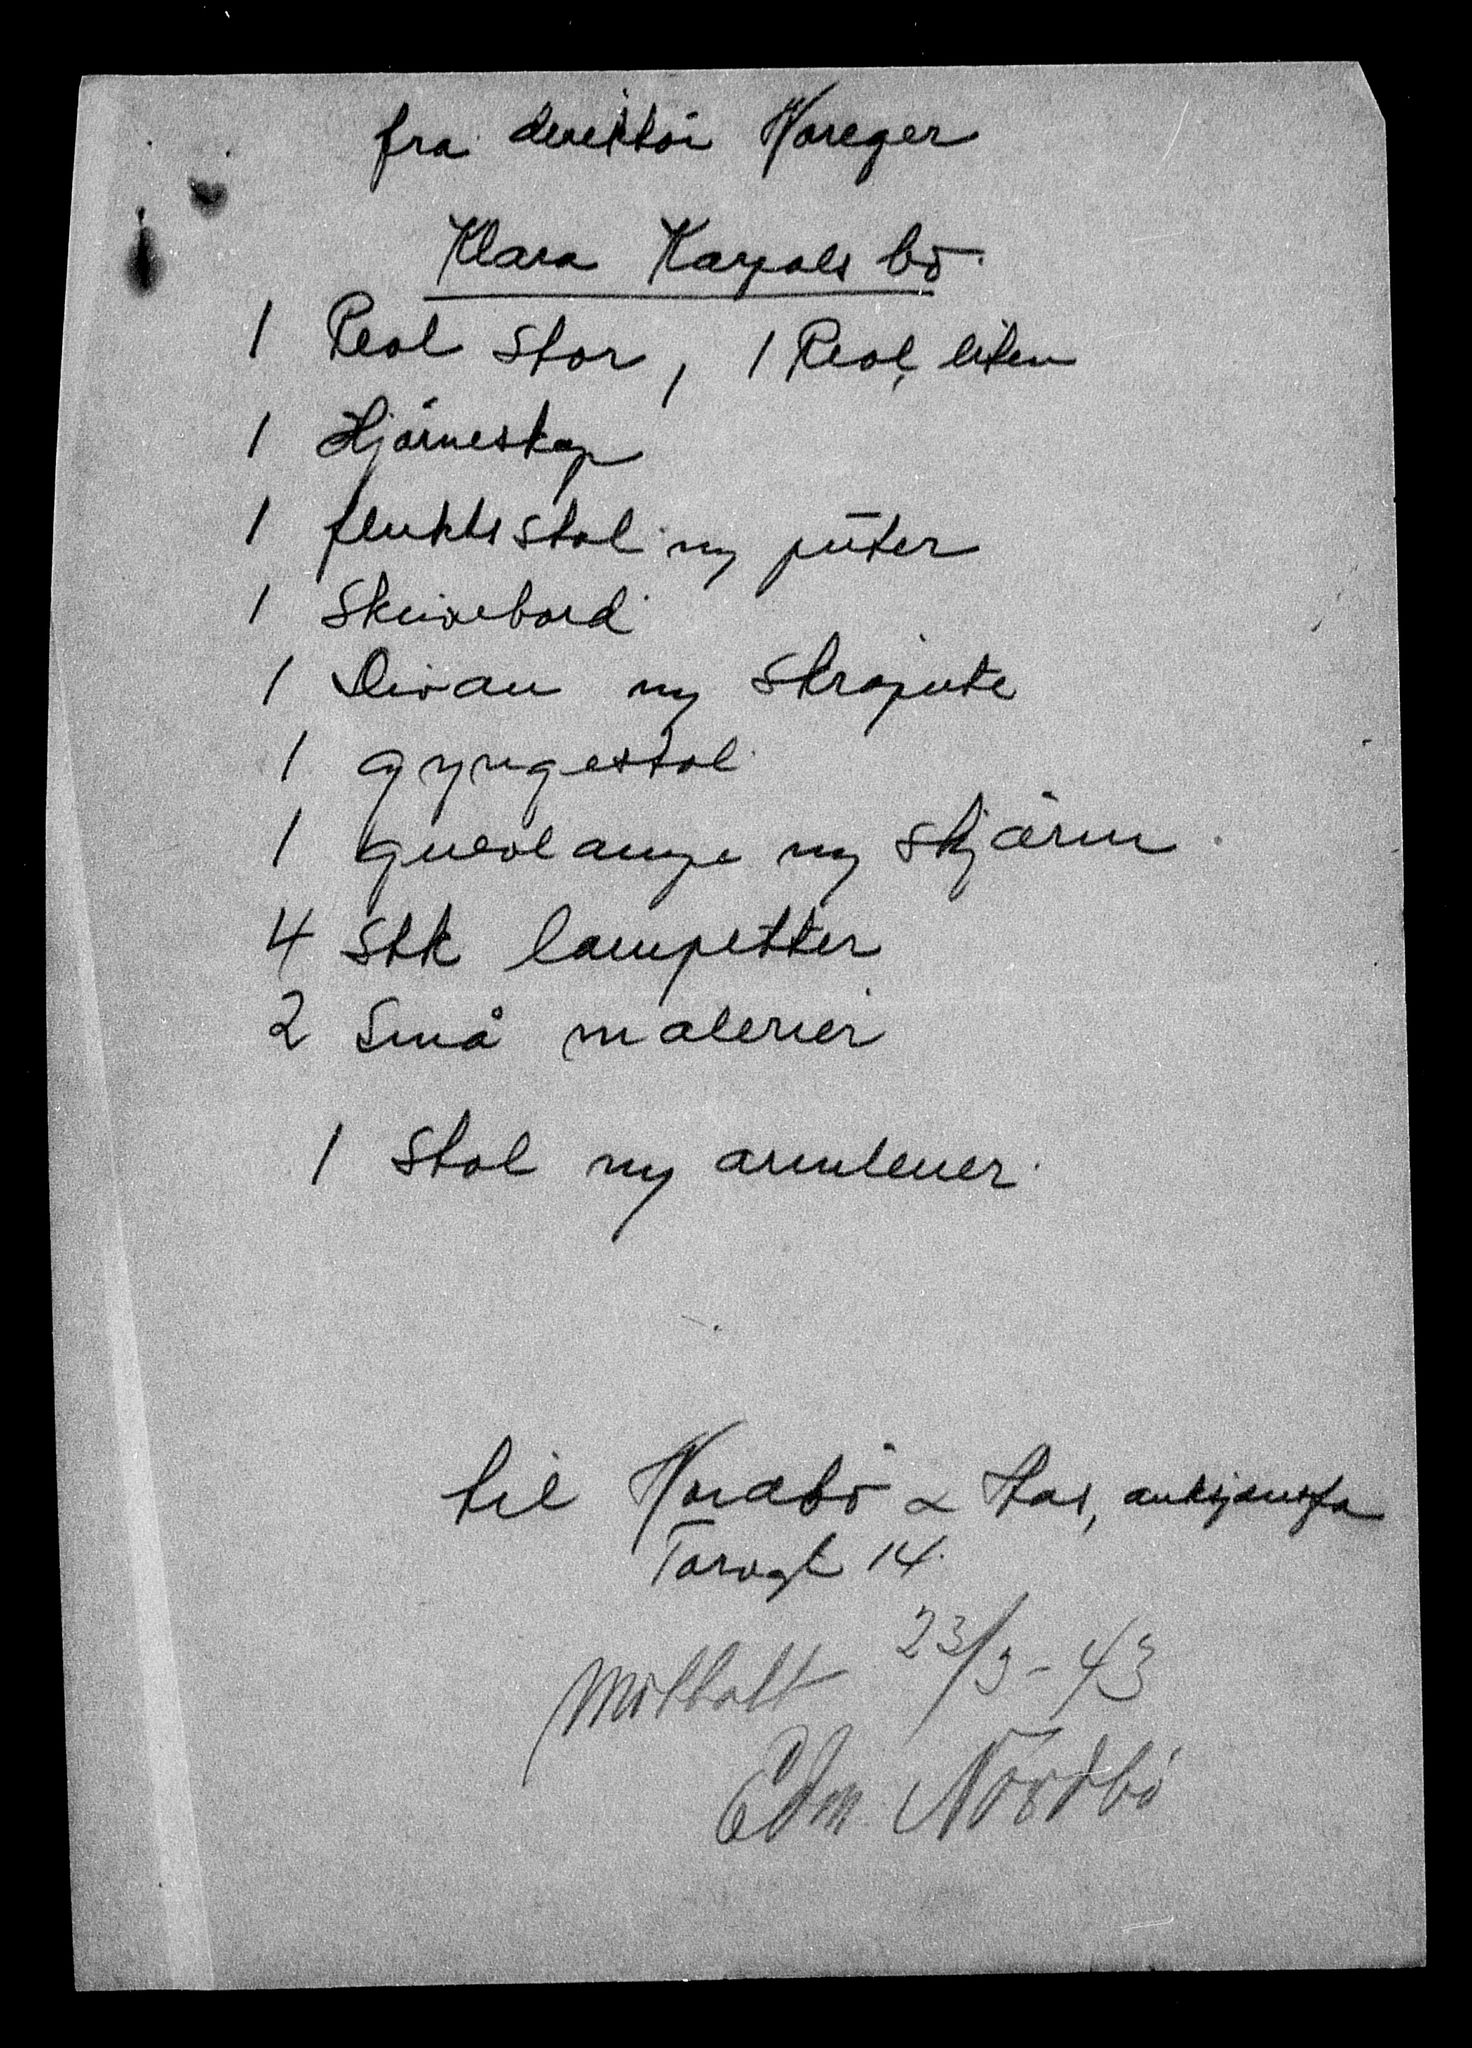 fra direktör Horeger
Klara Karpols bö.
1 Reol stor, 1 Reol, liten
1 Hjörneskap
1 flukts stol m/ puter
1 Skrivebord
1 Divan m/ skrapute
1 gyngestol
1 gulvlampe m/ skjärm.
4 Stk lampetter
2 Små malerier
1 Stol m/ armlener.
til Nordbö & Aas, auksjonsfa
Torvgt 14.
Mottatt 23/3-43
Edm. Nordbö